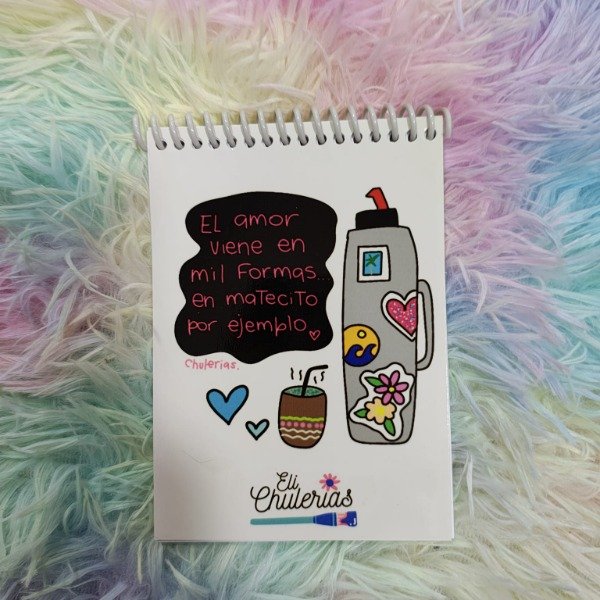 EL amor
viene en
mil Formas...
en maTeciTo
por ejemplo
Chulerias.
Eli
Chulerias